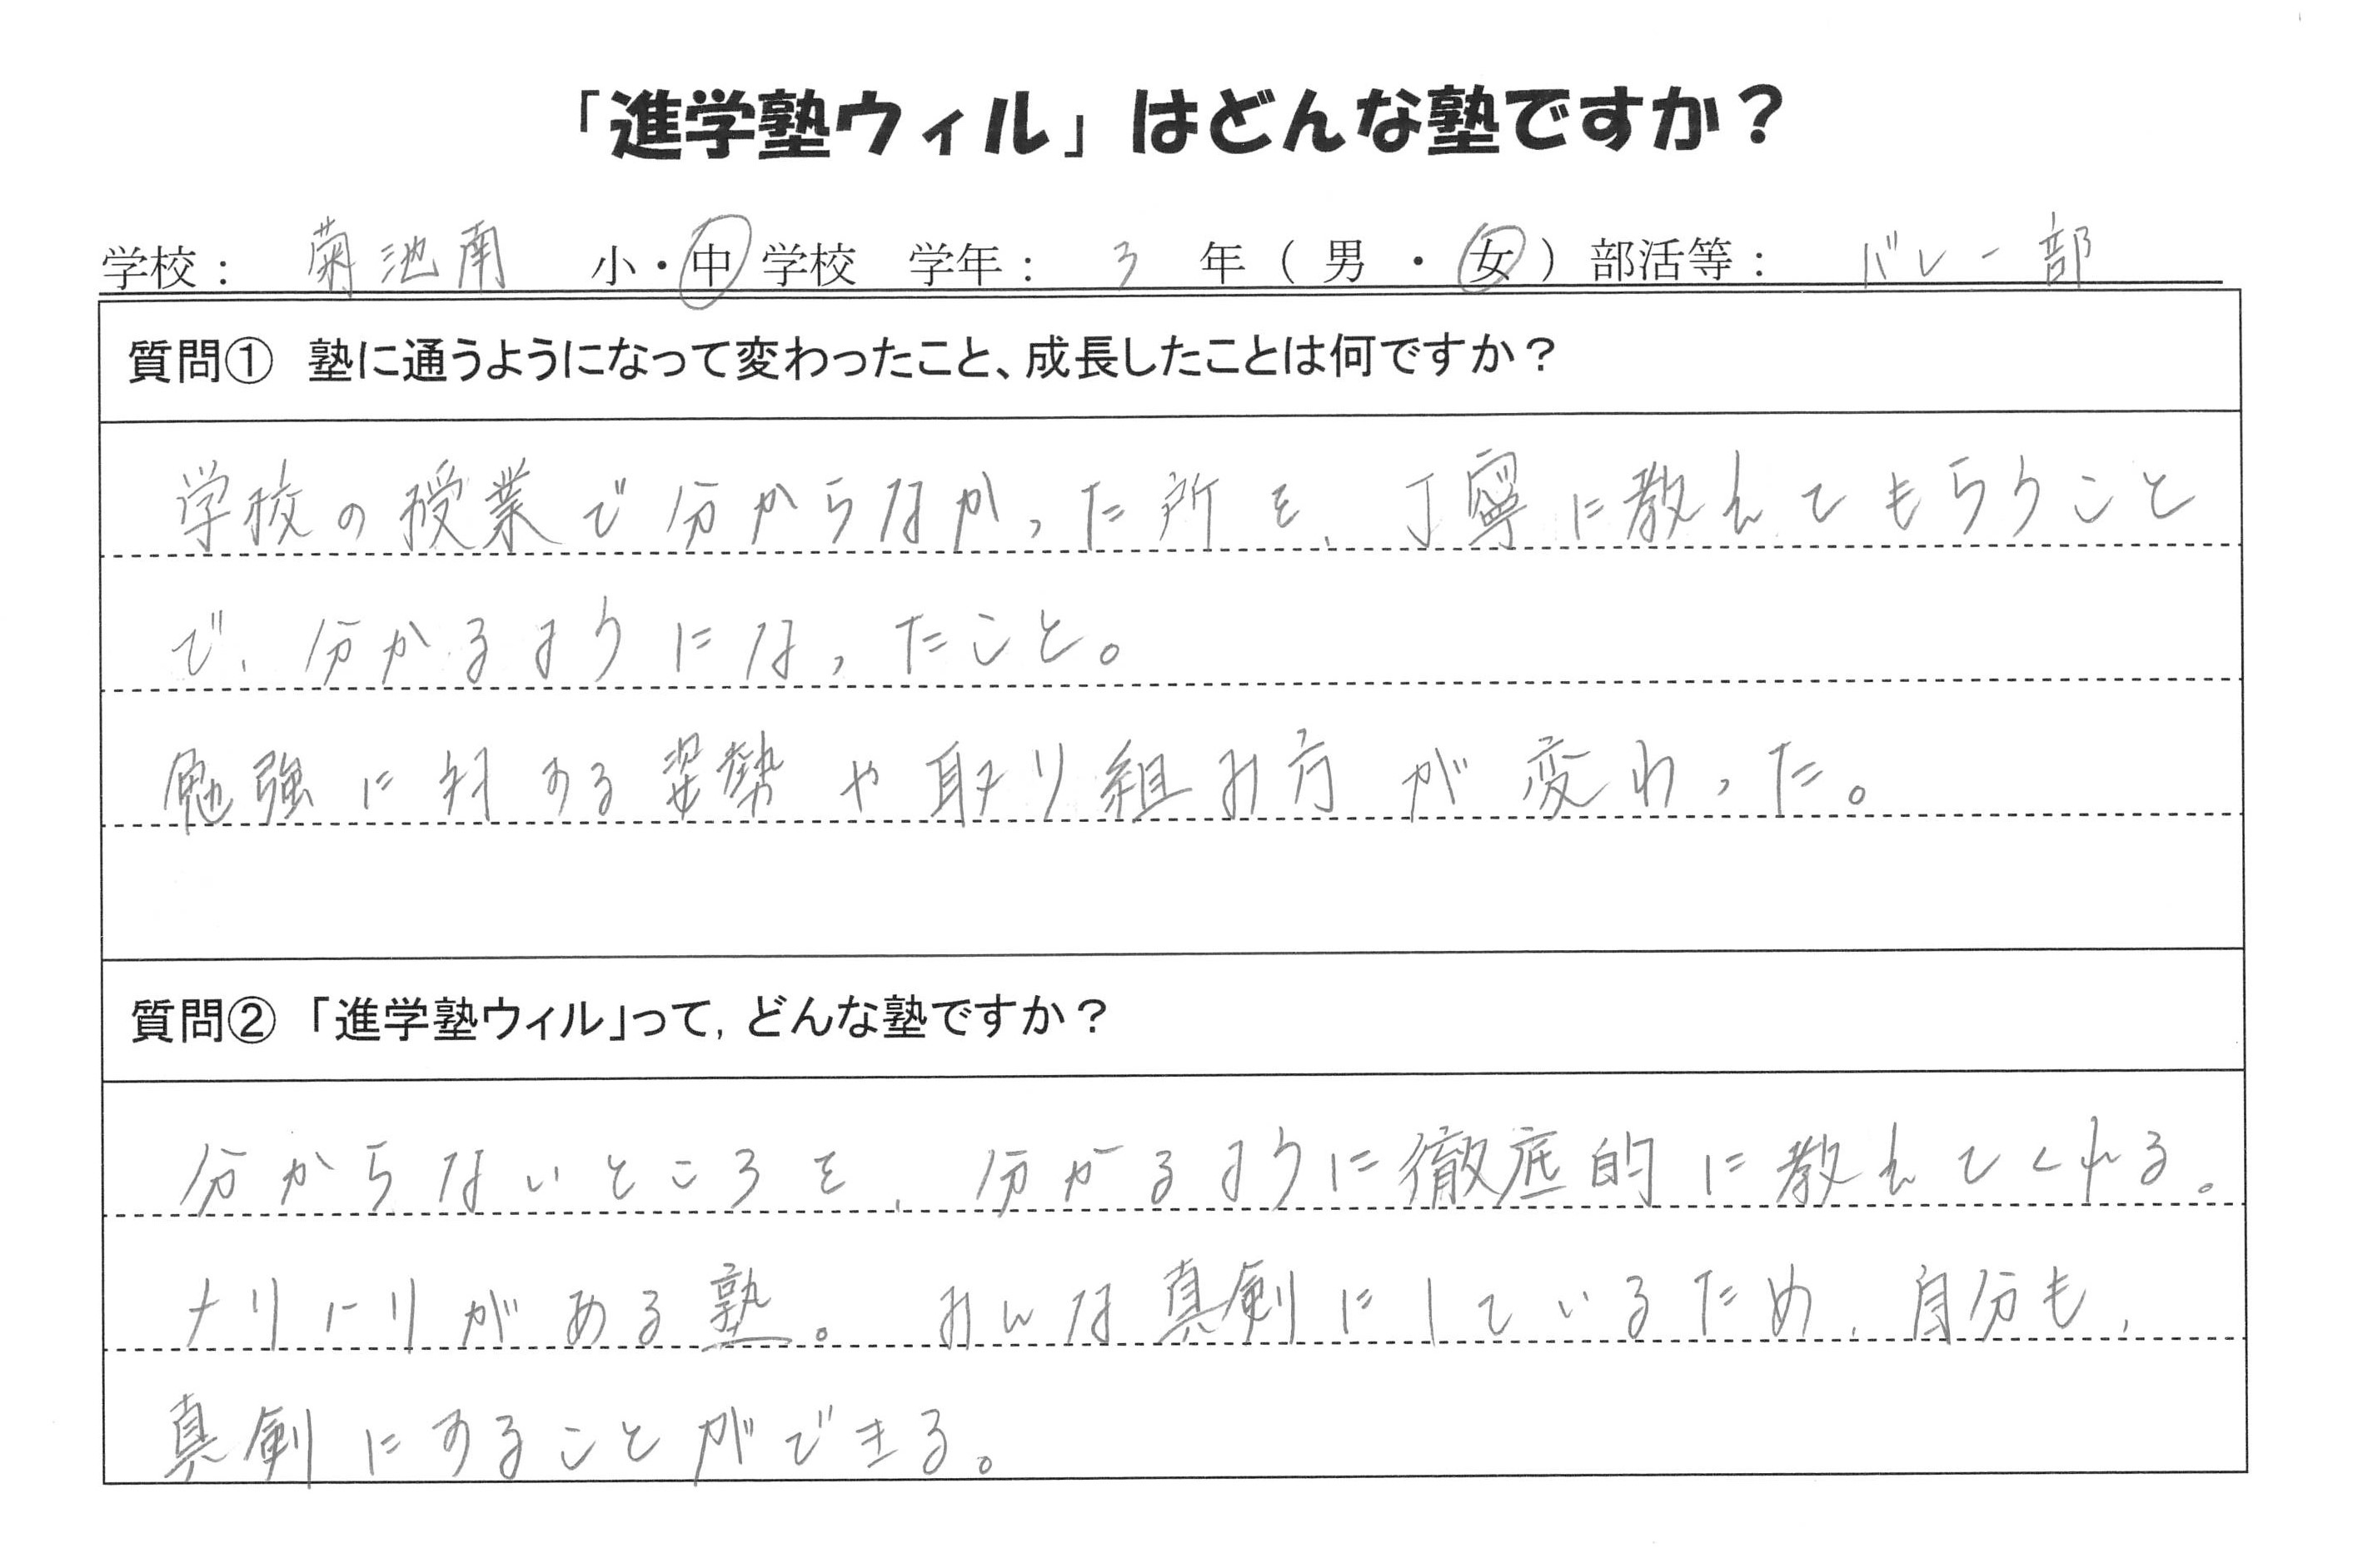 「進学塾ウィル」はどんな塾ですか？
学校： 菊池南 小・中学校 学年： 3 年（ 男 ・ 女 ）部活等： バレー部
質問① 塾に通うようになって変わったこと、成長したことは何ですか？
学校の授業で分からなかった所を、丁寧に教えてもらうこと
で、分かるようになったこと。
勉強に対する姿勢や取り組み方が変わった。
質問② 「進学塾ウィル」って，どんな塾ですか？
分からないところを、分かるように徹底的に教えてくれる。
メリハリがある塾。 みんな真剣にしているため、自分も、
真剣にすることができる。